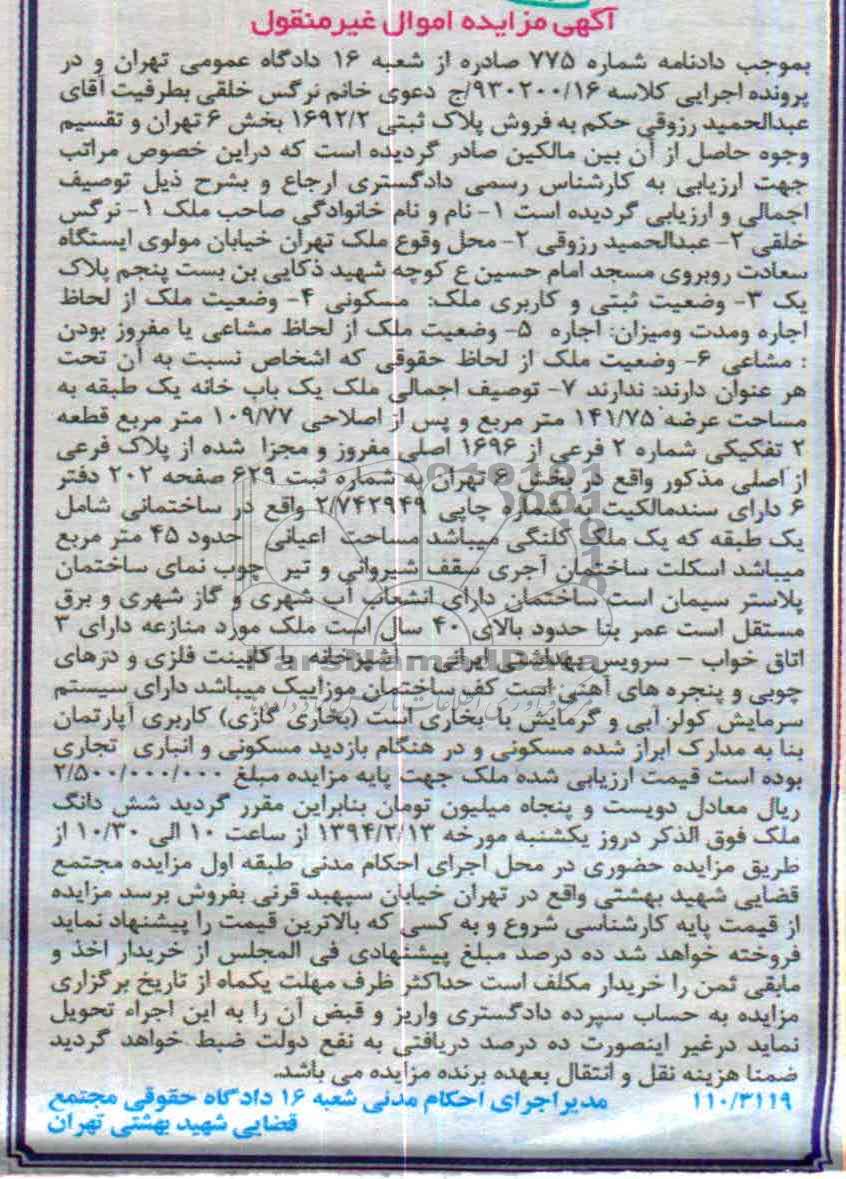 آگهی مزایده اموال غیرمنقول
بموجب دادنامه شماره ۷۷۵ صادره از شعبه ۱۶ دادگاه عمومی تهران و در
پرونده اجرایی کلاسه ۹۳۰۲۰۰/۱۶/ج دعوی خانم نرگس خلقی بطرفیت آقای
عبدالحمید رزوقی حکم به فروش پلاک ثبتی ۱۶۹۲/۲ بخش ۶ تهران و تقسیم
وجوه حاصل از آن بین مالکین صادر گردیده است که دراین خصوص مراتب
جهت ارزیابی به کارشناس رسمی دادگستری ارجاع و بشرح ذیل توصیف
اجمالی و ارزیابی گردیده است ۱- نام و نام خانوادگی صاحب ملک ۱- نرگس
خلقی ۲- عبدالحمید رزوقی ۲- محل وقوع ملک تهران خیابان مولوی ایستگاه
سعادت روبروی مسجد امام حسین ع کوچه شهید ذکایی بن بست پنجم پلاک
یک ۳- وضعیت ثبتی و کاربری ملک: مسکونی ۴- وضعیت ملک از لحاظ
اجاره ومدت ومیزان: اجاره ۵- وضعیت ملک از لحاظ مشاعی یا مفروز بودن
: مشاعی ۶- وضعیت ملک از لحاظ حقوقی که اشخاص نسبت به آن تحت
هر عنوان دارند: ندارند ۷- توصیف اجمالی ملک یک باب خانه یک طبقه به
مساحت عرضه ۱۴۱/۷۵ متر مربع و پس از اصلاحی ۱۰۹/۷۷ متر مربع قطعه
۲ تفکیکی شماره ۲ فرعی از ۱۶۹۶ اصلی مفروز و مجزا شده از پلاک فرعی
از اصلی مذکور واقع در بخش ۶ تهران به شماره ثبت ۶۲۹ صفحه ۲۰۲ دفتر
۶ دارای سندمالکیت به شماره چاپی ۲/۷۴۲۹۴۹ واقع در ساختمانی شامل
یک طبقه که یک ملک کلنگی میباشد مساحت اعیانی حدود ۴۵ متر مربع
میباشد اسکلت ساختمان آجری سقف شیروانی و تیر چوب نمای ساختمان
پلاستر سیمان است ساختمان دارای انشعاب آب شهری و گاز شهری و برق
مستقل است عمر بنا حدود بالای ۴۰ سال است ملک مورد منازعه دارای ۳
اتاق خواب – سرویس بهداشتی ایرانی – آشپزخانه با کابینت فلزی و درهای
چوبی و پنجره های آهنی است کف ساختمان موزاییک میباشد دارای سیستم
سرمایش کولر آبی و گرمایش با بخاری است (بخاری گازی) کاربری آپارتمان
بنا به مدارک ابراز شده مسکونی و در هنگام بازدید مسکونی و انباری تجاری
بوده است قیمت ارزیابی شده ملک جهت پایه مزایده مبلغ ۲/۵۰۰/۰۰۰/۰۰۰
ریال معادل دویست و پنجاه میلیون تومان بنابراین مقرر گردید شش دانگ
ملک فوق الذکر دروز یکشنبه مورخه ۱۳۹۴/۲/۱۳ از ساعت ۱۰ الی ۱۰/۳۰ از
طریق مزایده حضوری در محل اجرای احکام مدنی طبقه اول مزایده مجتمع
قضایی شهید بهشتی واقع در تهران خیابان سپهبد قرنی بفروش برسد مزایده
از قیمت پایه کارشناسی شروع و به کسی که بالاترین قیمت را پیشنهاد نماید
فروخته خواهد شد ده درصد مبلغ پیشنهادی فی المجلس از خریدار اخذ و
مابقی ثمن را خریدار مکلف است حداکثر ظرف مهلت یکماه از تاریخ برگزاری
مزایده به حساب سپرده دادگستری واریز و قبض آن را به این اجراء تحویل
نماید درغیر اینصورت ده درصد دریافتی به نفع دولت ضبط خواهد گردید
ضمنا هزینه نقل و انتقال بعهده برنده مزایده می باشد.
۱۱۰/۳۱۱۹ مدیراجرای احکام مدنی شعبه ۱۶ دادگاه حقوقی مجتمع
قضایی شهید بهشتی تهران
ParsNamadData